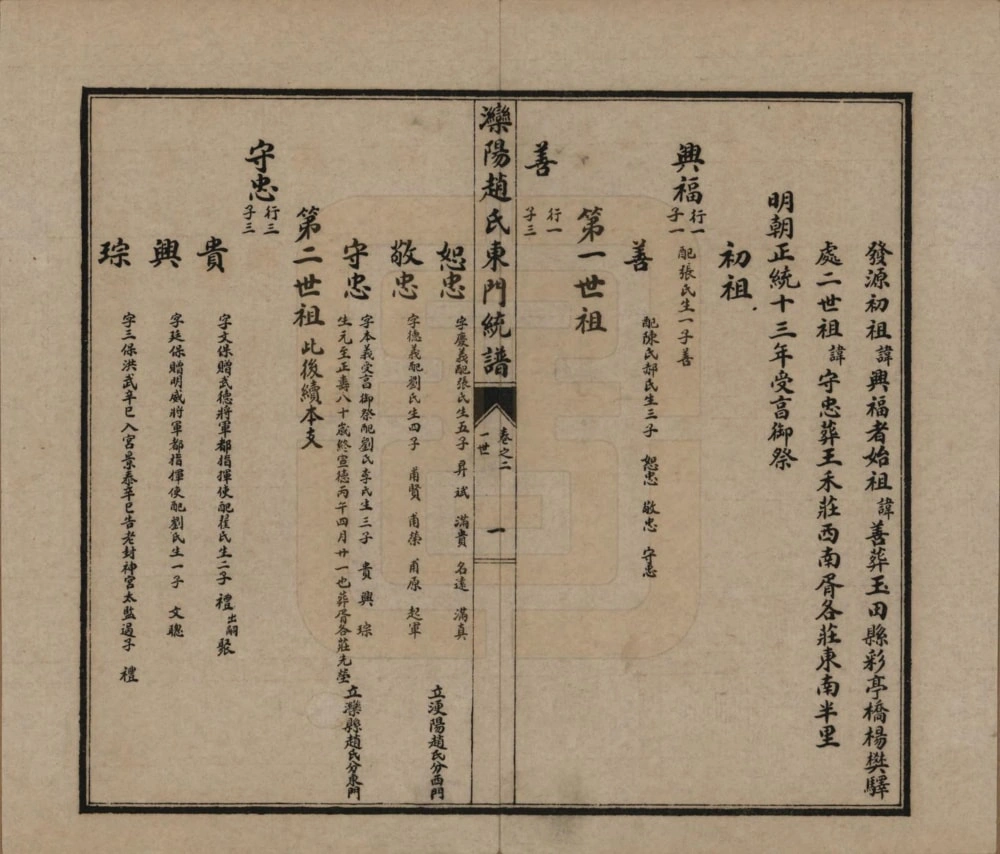 發源初祖諱興福者始祖諱善葬玉田縣彩亭橋楊樊驛
處二世祖諱守忠葬王禾莊西南胥各莊東南半里
明朝正統十三年受亯御祭
初祖
興福 行一 子一 配張氏生一子善
善 配陳氏郝氏生三子 恕忠 敬忠 守忠
第一世祖
善 行一 子三
灤陽趙氏東門統譜 卷之二 一世 一
恕忠 字慶義配張氏生五子 昇 斌 滿貴 名遠 滿真 立浭陽趙氏分西門
敬忠 字德義配劉氏生四子 甫賢 甫榮 甫原 起軍
守忠 字本義受亯御祭配劉氏李氏生三子 貴 興 琮
生元至正壽八十歲終宣德丙午四月廿一也葬胥各莊先塋 立灤縣趙氏分東門
第二世祖 此後續本支
守忠 行三 子三
貴 字文保贈武德將軍都指揮使配崔氏生二子 禮 出嗣 聚
興 字廷保贈明威將軍都指揮使配劉氏生一子 文聰
琮 字三保洪武辛巳入宮景泰辛巳告老封神宮太監過子 禮